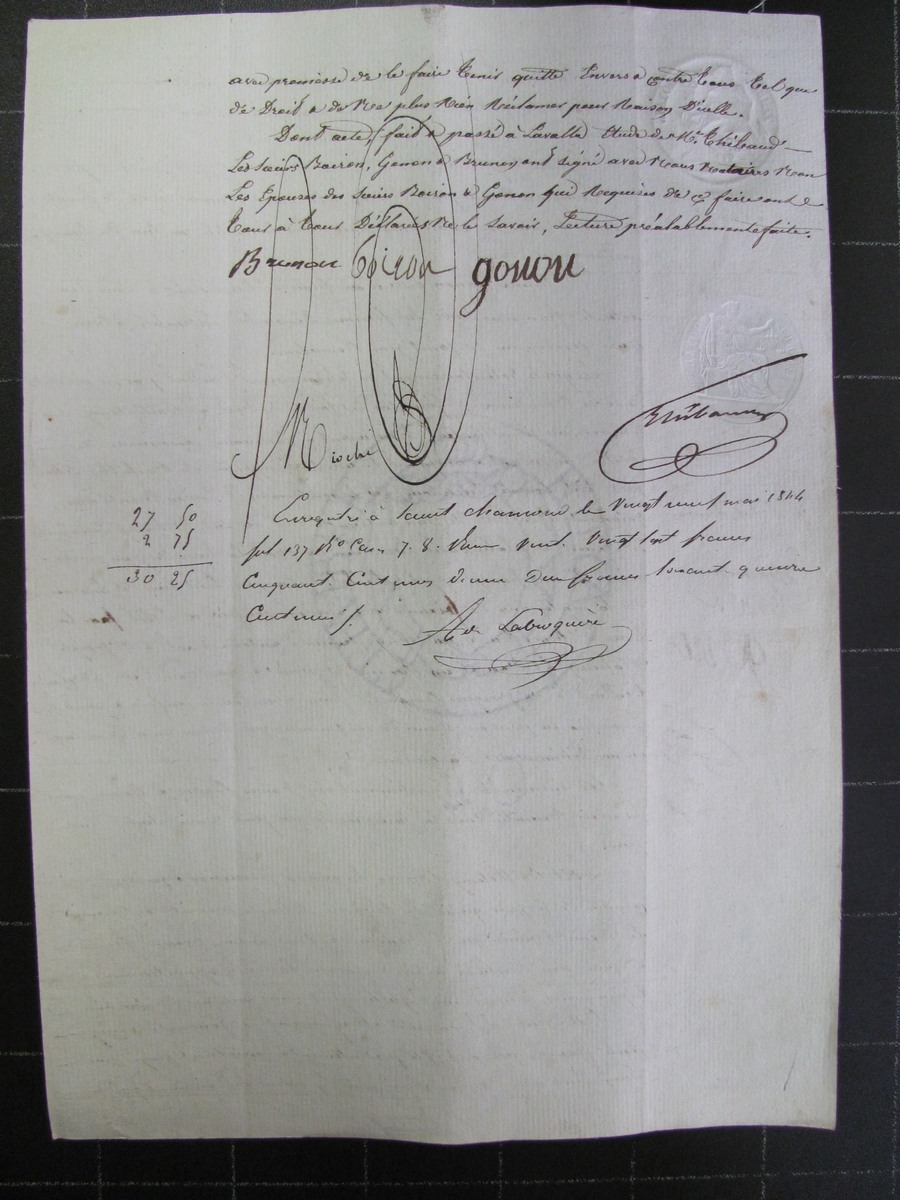 avec promesse de le faire tenir quitte Envers & contre tous tel que
de Droit & de Ne plus Rien Réclamer pour Raison D'icelle.
Dont acte, fait & passé à Lavalla Etude de Me. Thibaud
Les sieurs Boiron, Gonon & Brunon ont signé avec Nous Notaires Non
Les Epouses des sieurs Boiron & Gonon qui Requises De ce faire ont
tour à tour Déclaré Ne le Savoir, Lecture préalablement faite.
Brunon Boiron gonon
Mioche
Thibaud
Enregistré à Saint chamond le vingt neuf mai 1844
27 50
2 75
30 25
fol 137 Ro Case 7. 8. Reçu vingt sept francs
Cinquante Centimes Dixme Deux francs soixante quinze
Centimes /.
Labroquère